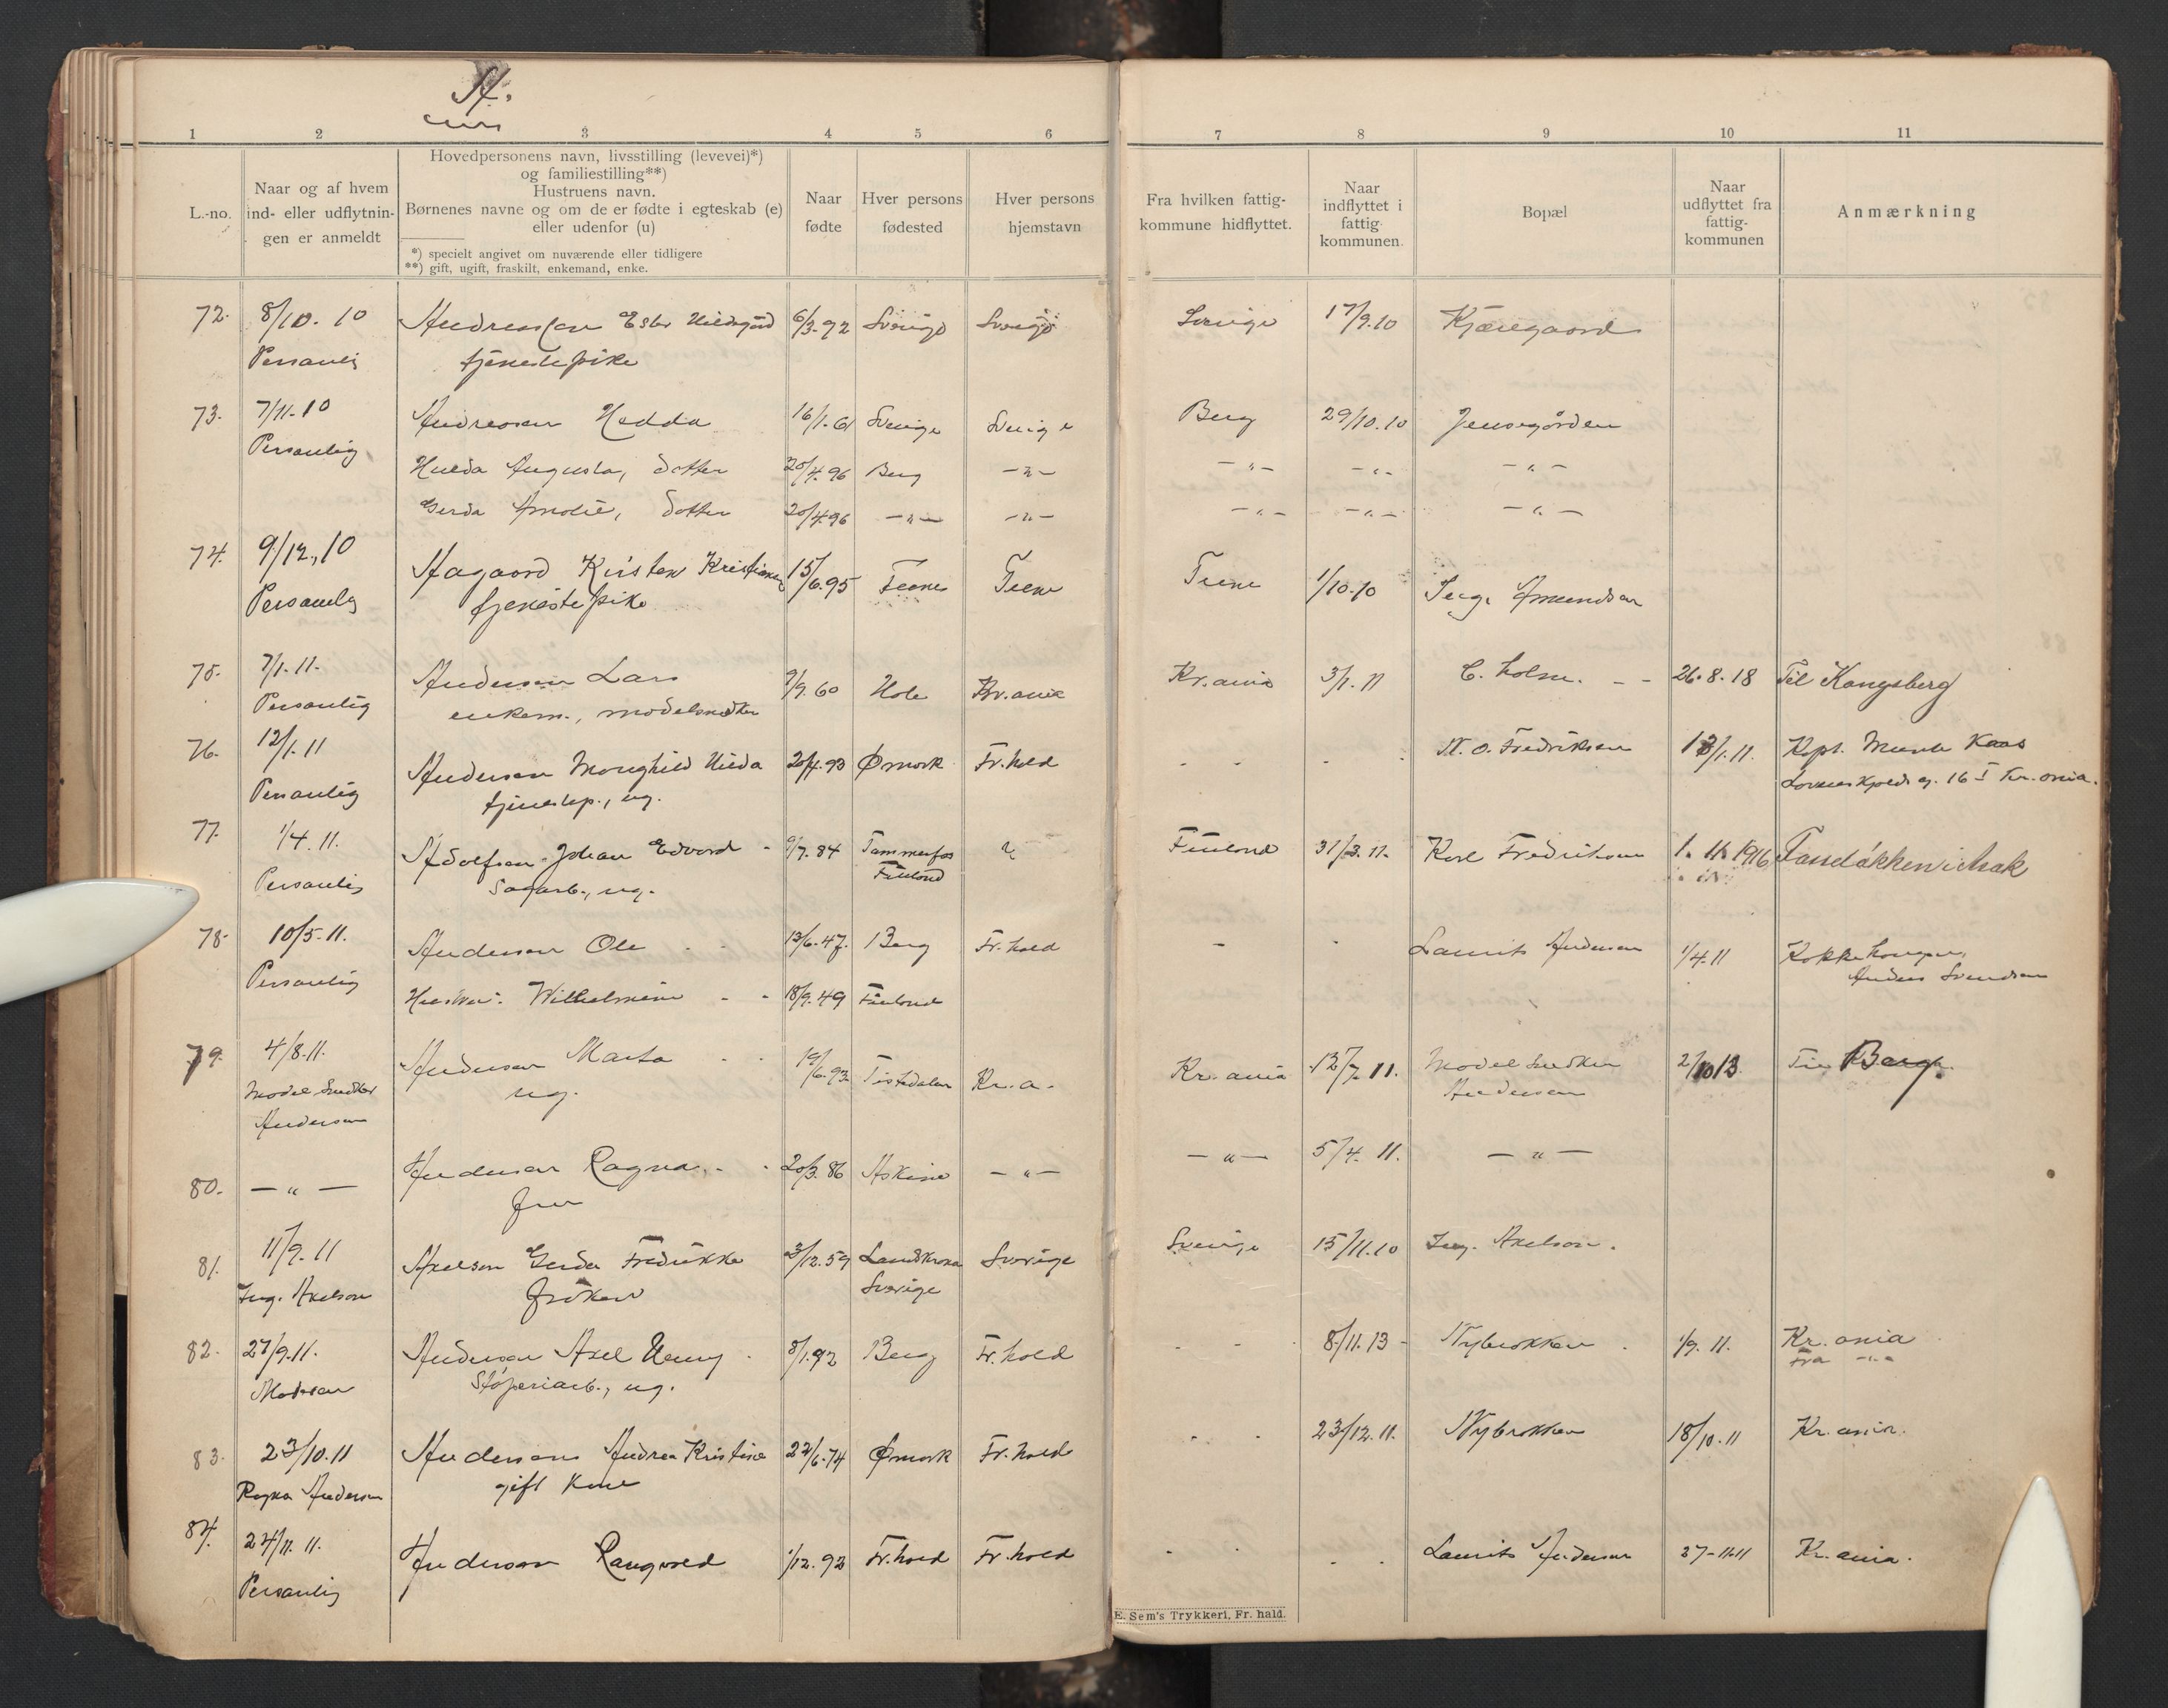 A.
1 2 3 4 5 6 7 8 9 10 11
L.-no.
Naar og af hvem
ind- eller udflytnin-
gen er anmeldt
Hovedpersonens navn, livsstilling (levevei)*)
og familiestilling**)
Hustruens navn.
Børnenes navne og om de er fødte i egteskab (e)
eller udenfor (u)
*) specielt angivet om nuværende eller tidligere
**) gift, ugift, fraskilt, enkemand, enke.
Naar
fødte
Hver persons
fødested
Hver persons
hjemstavn
Fra hvilken fattig-
kommune hidflyttet.
Naar
indflyttet i
fattig-
kommunen.
Bopæl
Naar
udflyttet fra
fattig-
kommunen
Anmærkning
72. 8/10. 10 Andreassen Ester Hildegård 6/3.92 Sverige Sverige Sverige 17/9.10 Kjæregaard
Personlig tjenestepike
73. 7/11-10 Andreasen Hedda 16/1.61 Sverige Sverige Berg 29/10.10 Jensegården
Personlig
Hulda Augusta, datter 20/4.96 Berg —"— —"— —"— —"—
Gerda Amalie, datter 20/4.96 —"— —"— —"— —"— —"—
74. 9/12.,10 Aagaard Kirsten Kristiane 15/6.95 1/10.10 Amundsen
Personlig tjenestepike
75. 7/1.11. Andersen Lars 9/9.60 Hole Kr.ania Kr.ania 3/1.11 C. Holm. - - 26.8.18 Til Kongsberg
Personlig enkem., modelsnedker
76. 12/1.11 Andersen Hilda 20/4.93 Ømark Fr.hald - - - - N. O. Fredriksen 13/1.11. Kapt. Munthe Kaas
Personlig tjenestep., ug. g. 16 I Kr.ania.
77. 1/4.11. Adolfsen Johan Edvard - 9/7.84 Tammerfos ? Finland 31/3.11. Karl Fredriksen 1.11.1916
Personlig Sagarb., ug. Finland
78. 10/5-11. Andersen Ole - - 13/6.47. Berg Fr.hald - - Laurits Andersen 1/4.11
Personlig Anders Svendsen
Hustru: Wilhelmine - - 18/9.49 Finland
79. 4/8.11. Andersen Marta - - 19/6.93 Tistedalen Kr.a. Kr.ania 12/7.11. Modelsnedker 2/10 13. Til Berg.
Modelsnedker ug. Andersen
Andersen
80. —"— Andersen Ragna, - - 20/3.86 Askim —"— —"— 5/4. 11. —"—
fru
81. 11/9.11 Axelson Gerda Fredrikke 3/12.59 Landskrona Sverige Sverige 15/11.10 Ing. Axelson.
Ing. Axelson frøken Sverige
82. 27/9.11. Andersen Axel Henry - 8/1.92 Berg Fr.hald - - - 8/11.13 - Nybrokken . 1/9.11. Kr.ania
Støperiarb., ug. Fra -"-
83. 23/10.11 Andersen Andrea Kristine 22/6.74 Ømark Fr.hald - - 23/12.11. Nybrokken 18/10.11 Kr.ania.
Ragna Andersen gift kone
84. 24/11.11. Andersen Rangvald 1/12.92 Fr.hald Fr.hald - - - - Laurits Andersen 27-11-11 Kr.ania.
Personlig
E. Sem's Trykkeri, Fr. hald.